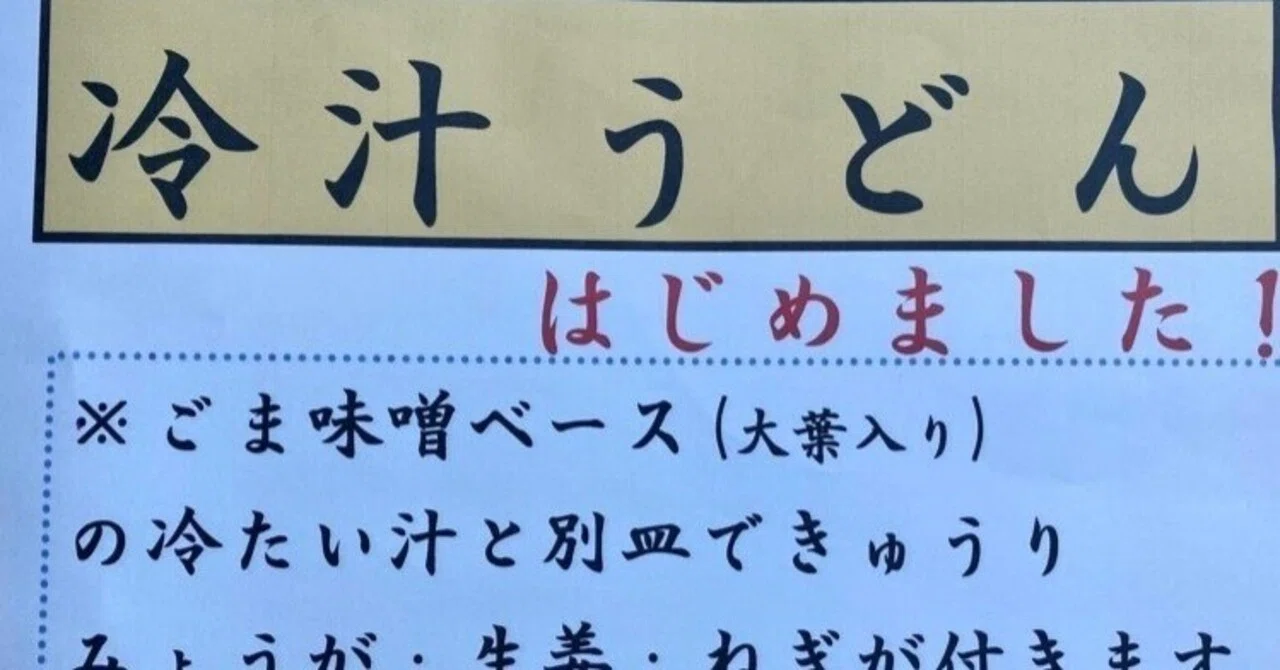 冷汁うどん
はじめました!
※ごま味噌ベース(大葉入り)
の冷たい汁と別皿できゅうり
みょうが・生姜・ねぎが付きます